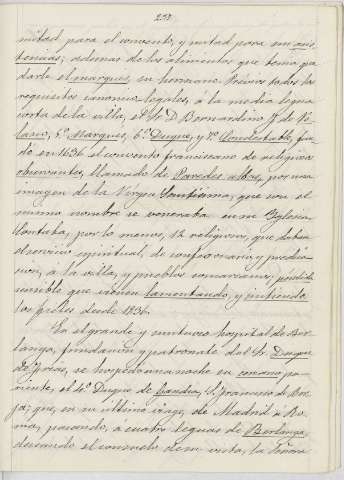 258
mitad para el convento, y mitad para sus
además de los alimentos que tenía pa
darle el marqués, su hermano. Previos todos los
requisitos canónico legales, á la media legua
corta de la villa, el Sr. D. Bernardino F. de Ve-
lasco, 5º Marqués, 6º Duque, y 7º Condestable, fun-
dó en 1636 el convento franciscano de religiosos
observantes, llamado de Paredes albas, por una
imagen de la Virgen Santísima, que con el
mismo nombre se veneraba en su Iglesia
Contaba, por lo menos, 12 religiosos, que daban
el servicio espiritual, de confesonario y predica-
cion, á la villa, y pueblos comarcanos; pérdida
sensible que vienen lamentando, y sufriendo
los fieles desde 1836.
En el grande y suntuoso hospital de Ber-
langa, fundación y patronato del Sr. Duque
de Frías, se hospedó una noche su cercano pa-
riente, el 4º Duque de Gandía, S. Francisco de Bor-
ja; que, en su último viaje, de Madrid a Ro-
ma, pasando, a cuatro leguas de Berlanga,
deseando el consuelo de su vista, la Señora